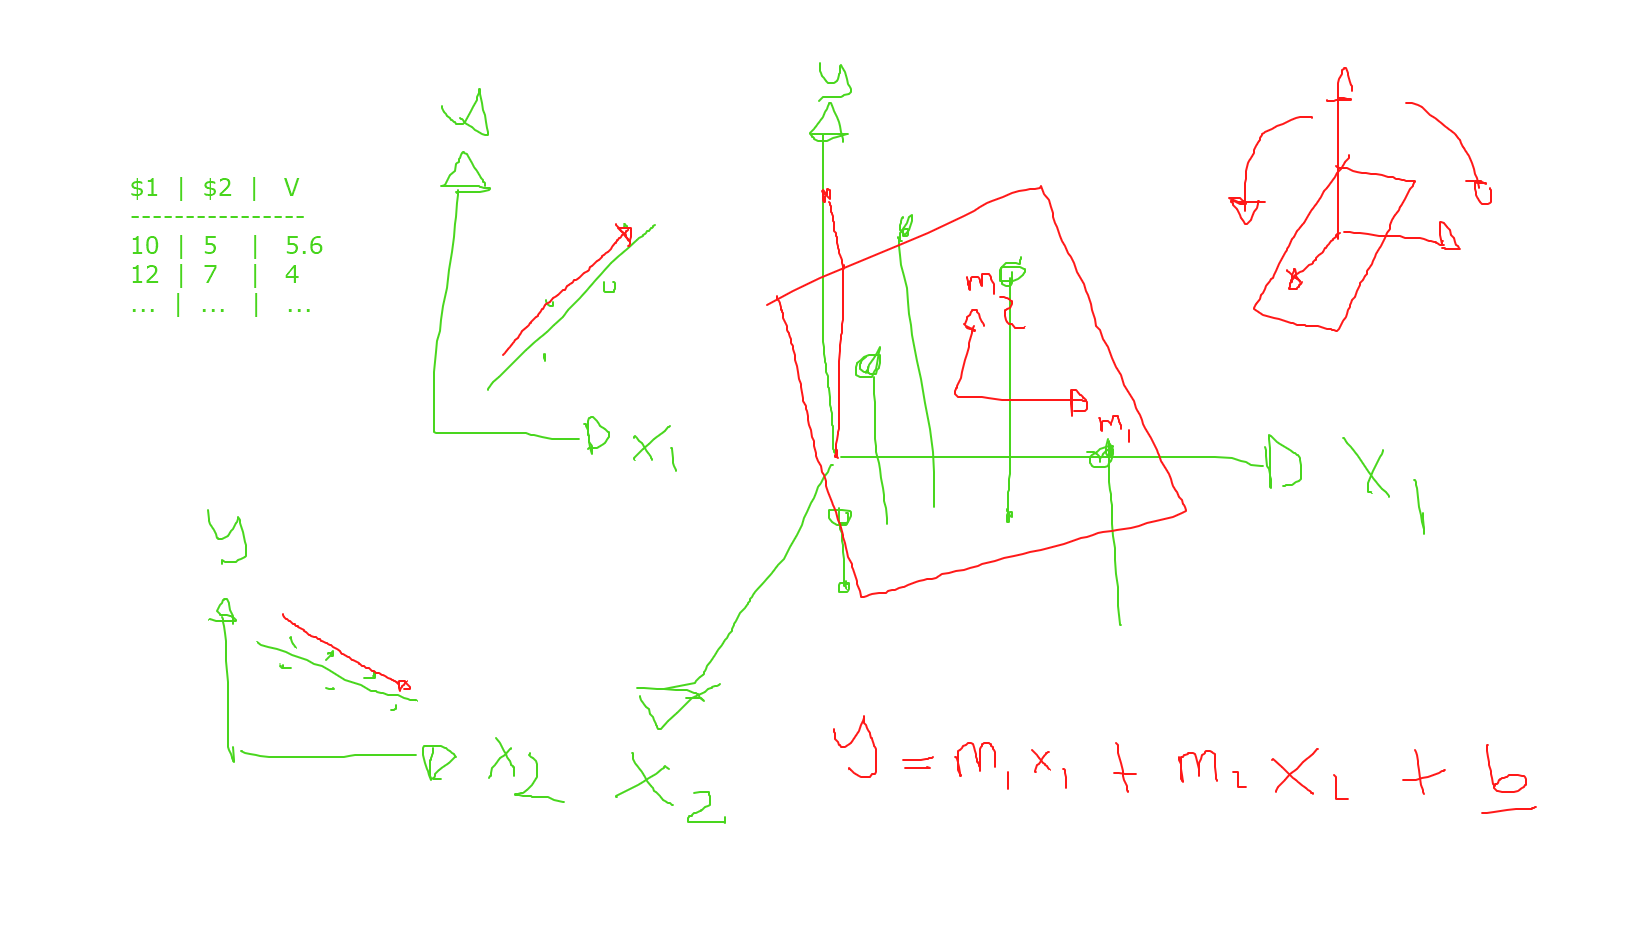 $1 | $2 | V
----------------
10 | 5 | 5.6
12 | 7 | 4
... | ... | ...
y
x1
y
x2
y
m2
m1
x1
x2
y = m1 x1 + m2 x2 + b